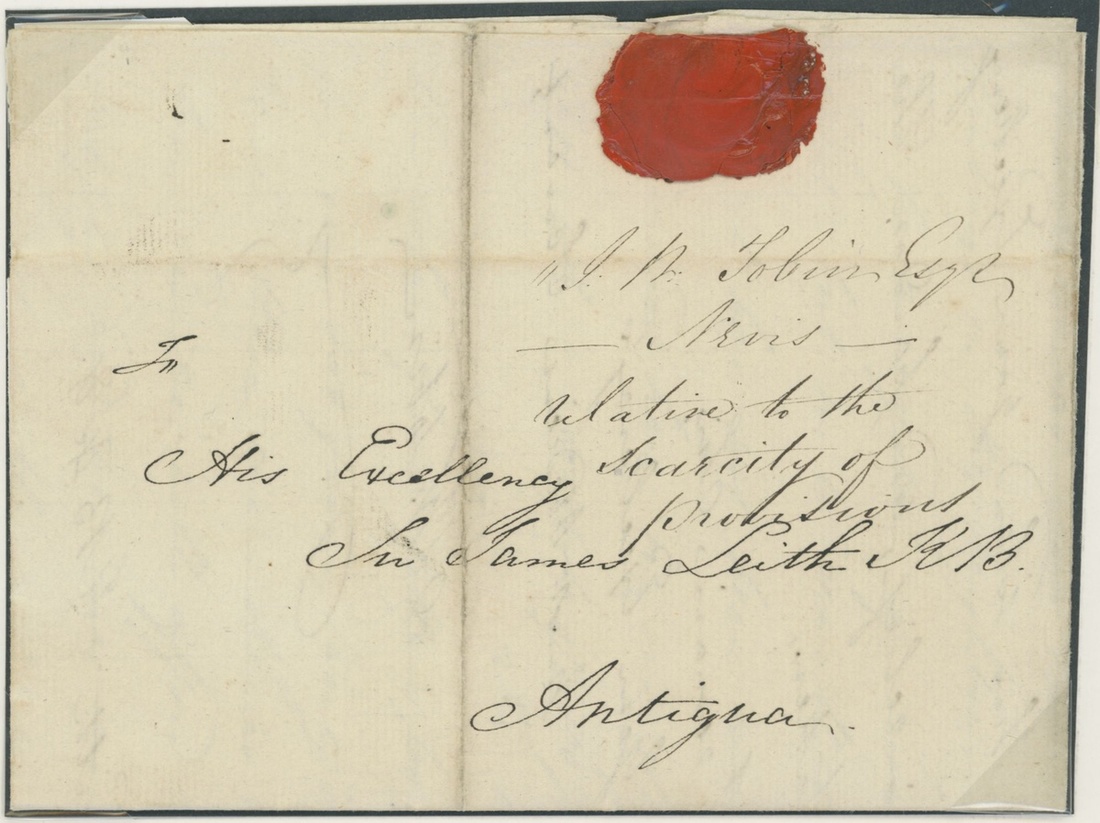 " J. W. Tobin Esqr
— Nevis —
relative to the
scarcity of
provisions
To
His Excellency
Sir James Leith KB.
Antigua.